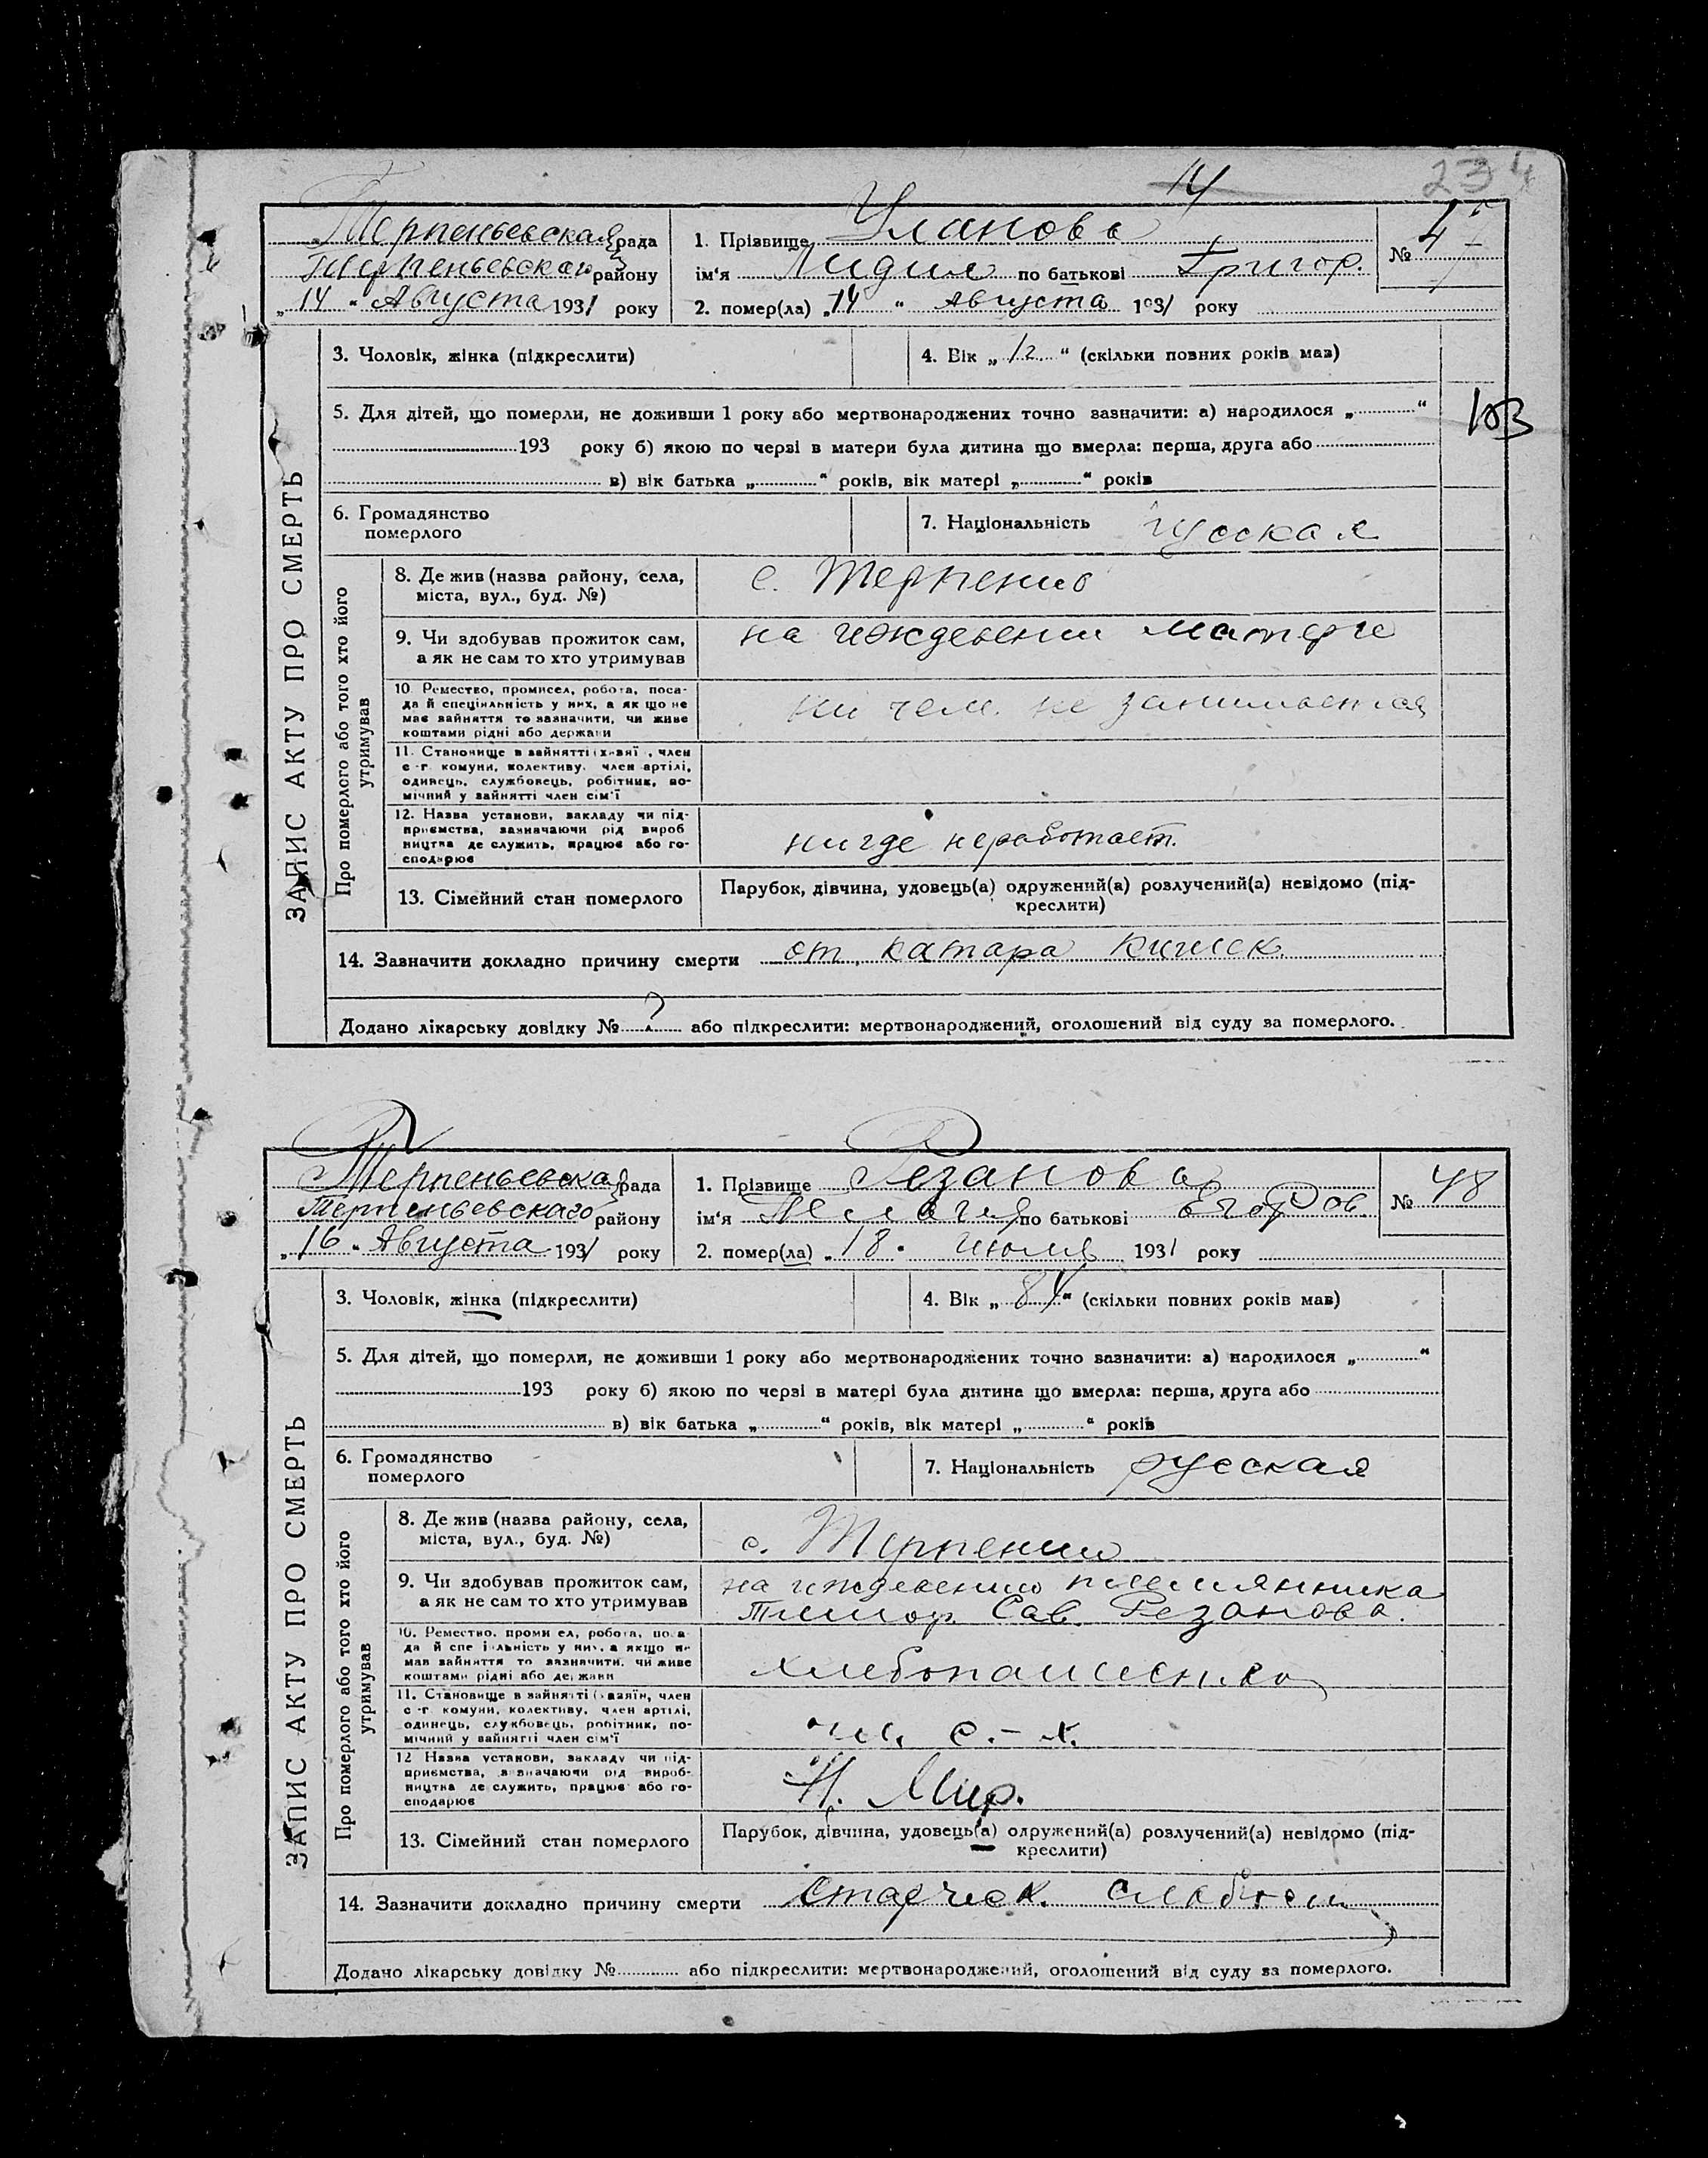 234
14
Терпеньевская рада
Терпеньевского району
„14“ Августа 1931 року
1. Прізвище Уланова
ім'я Лидия по батькові Григор.
№ 47
2. помер(ла) „14“ Августа 1931 року
3. Чоловік, жінка (підкреслити)
4. Вік „12“ (скільки повних років мав)
5. Для дітей, що померли, не доживши 1 року або мертвонароджених точно зазначити: а) народилося „ “
103
193 року б) якою по черзі в матери була дитина що вмерла: перша, друга або
в) вік батька „ “ років, вік матері „ “ років
6. Громадянство
померлого
7. Національність русская
ЗАПИС АКТУ ПРО СМЕРТЬ
Про померлого або того хто його
утримував
8. Де жив (назва району, села,
міста, вул., буд. №)
с. Терпение
9. Чи здобував прожиток сам,
а як не сам то хто утримував
на иждевении матери
10 Ремество, промисел, робота, поса-
да й спеціяльність у них, а як що не
має зайняття то зазначити, чи живе
коштами рідні або держави
ни чем не занимается
11. Становище в зайнятті (хазяї , член
с -г. комуни, колективу, член артілі,
одинець, службовець, робітник, по-
мічний у зайнятті член сім'ї
12. Назва установи, закладу чи під-
приємства, зазначаючи рід вироб
ництва де служить, працює або го-
сподарює
нигде неработает.
13. Сімейний стан померлого
Парубок, дівчина, удовець(а) одружений(а) розлучений(а) невідомо (під-
креслити)
14. Зазначити докладно причину смерти от катара кишек
Додано лікарську довідку № ? або підкреслити: мертвонароджений, оголошений від суду за померлого.
Терпеньевская рада
Терпеньевского району
„16“ Августа 1931 року
1. Прізвище Резанова
ім'я Пелагия по батькові Егоров.
№ 48
2. помер(ла) „18“ июля 1931 року
3. Чоловік, жінка (підкреслити)
4. Вік „84“ (скільки повних років мав)
5. Для дітей, що померли, не доживши 1 року або мертвонароджених точно зазначити: а) народилося „ “
193 року б) якою по черзі в матері була дитина що вмерла: перша, друга або
в) вік батька „ “ років, вік матері „ “ років
6. Громадянство
померлого
7. Національність русская
ЗАПИС АКТУ ПРО СМЕРТЬ
Про померлого або того хто його
утримував
8. Де жив (назва району, села,
міста, вул., буд. №)
с. Терпение
9. Чи здобував прожиток сам,
а як не сам то хто утримував
на иждевении племянника
Тимоф. Сав. Резанова.
10. Ремество, проми ел, робота, поса
да й спе і льність у них, а якщо не
має зайняття то зазначити, чи живе
коштами рідні або держави
хлебопашество
11. Становище в зайнятті (хазяїн, член
с -г. комуни, колективу, член артілі,
одинець, службовець, робітник, по-
мічний у зайнятті член сім'ї
чл. с.-х.
12 Назва установи, закладу чи під-
приємства, зазначаючи рід вироб-
ництва де служить, працює або го-
сподарює
Н. Мир.
13. Сімейний стан померлого
Парубок, дівчина, удовець(а) одружений(а) розлучений(а) невідомо (під-
креслити)
14. Зазначити докладно причину смерти старческ. слабост
Додано лікарську довідку № або підкреслити: мертвонароджений, оголошений від суду за померлого.